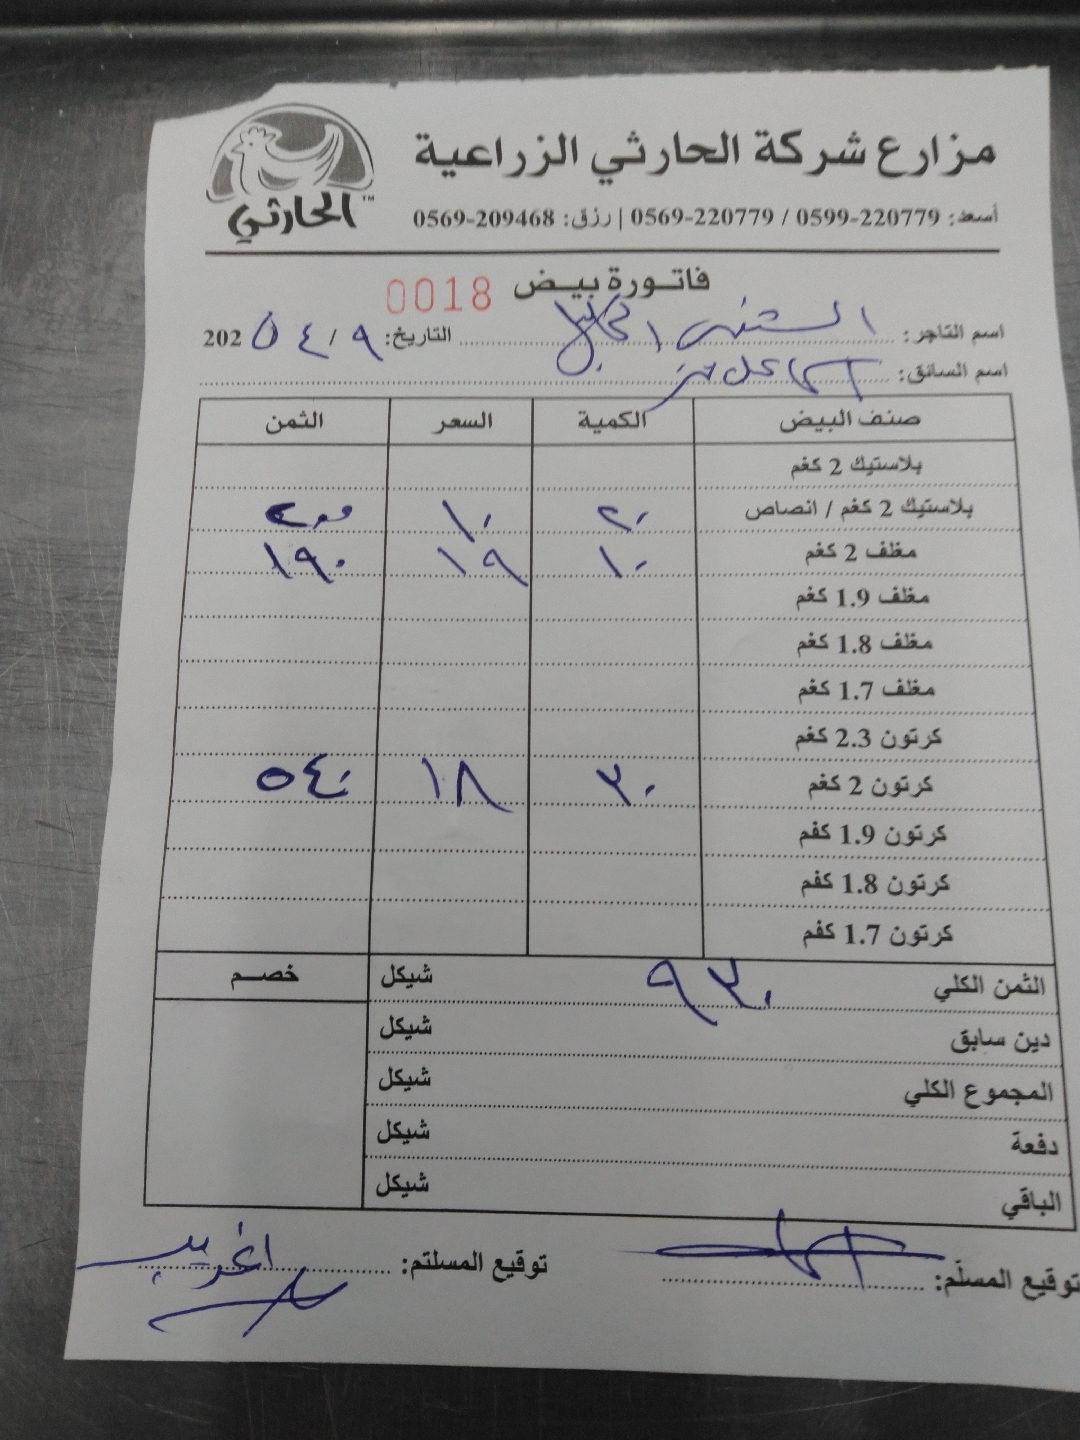 الحارثي™
مزارع شركة الحارثي الزراعية
أسعد: 0599-220779 / 0569-220779 | رزق: 0569-209468
فاتورة بيض 0018
اسم التاجر: التاريخ: ٩ / ٤ 202٥
اسم السائق:
صنف البيض الكمية السعر الثمن
بلاستيك 2 كغم
بلاستيك 2 كغم / انصاص ٢٠ ١٠ ٢٠٠
مغلف 2 كغم ١٠ ١٩ ١٩٠
مغلف 1.9 كغم
مغلف 1.8 كغم
مغلف 1.7 كغم
كرتون 2.3 كغم
كرتون 2 كغم ٣٠ ١٨ ٥٤٠
كرتون 1.9 كغم
كرتون 1.8 كغم
كرتون 1.7 كغم
الثمن الكلي ٩٣٠ شيكل خصم
دين سابق شيكل
المجموع الكلي شيكل
دفعة شيكل
الباقي شيكل
توقيع المسلّم: توقيع المستلم: